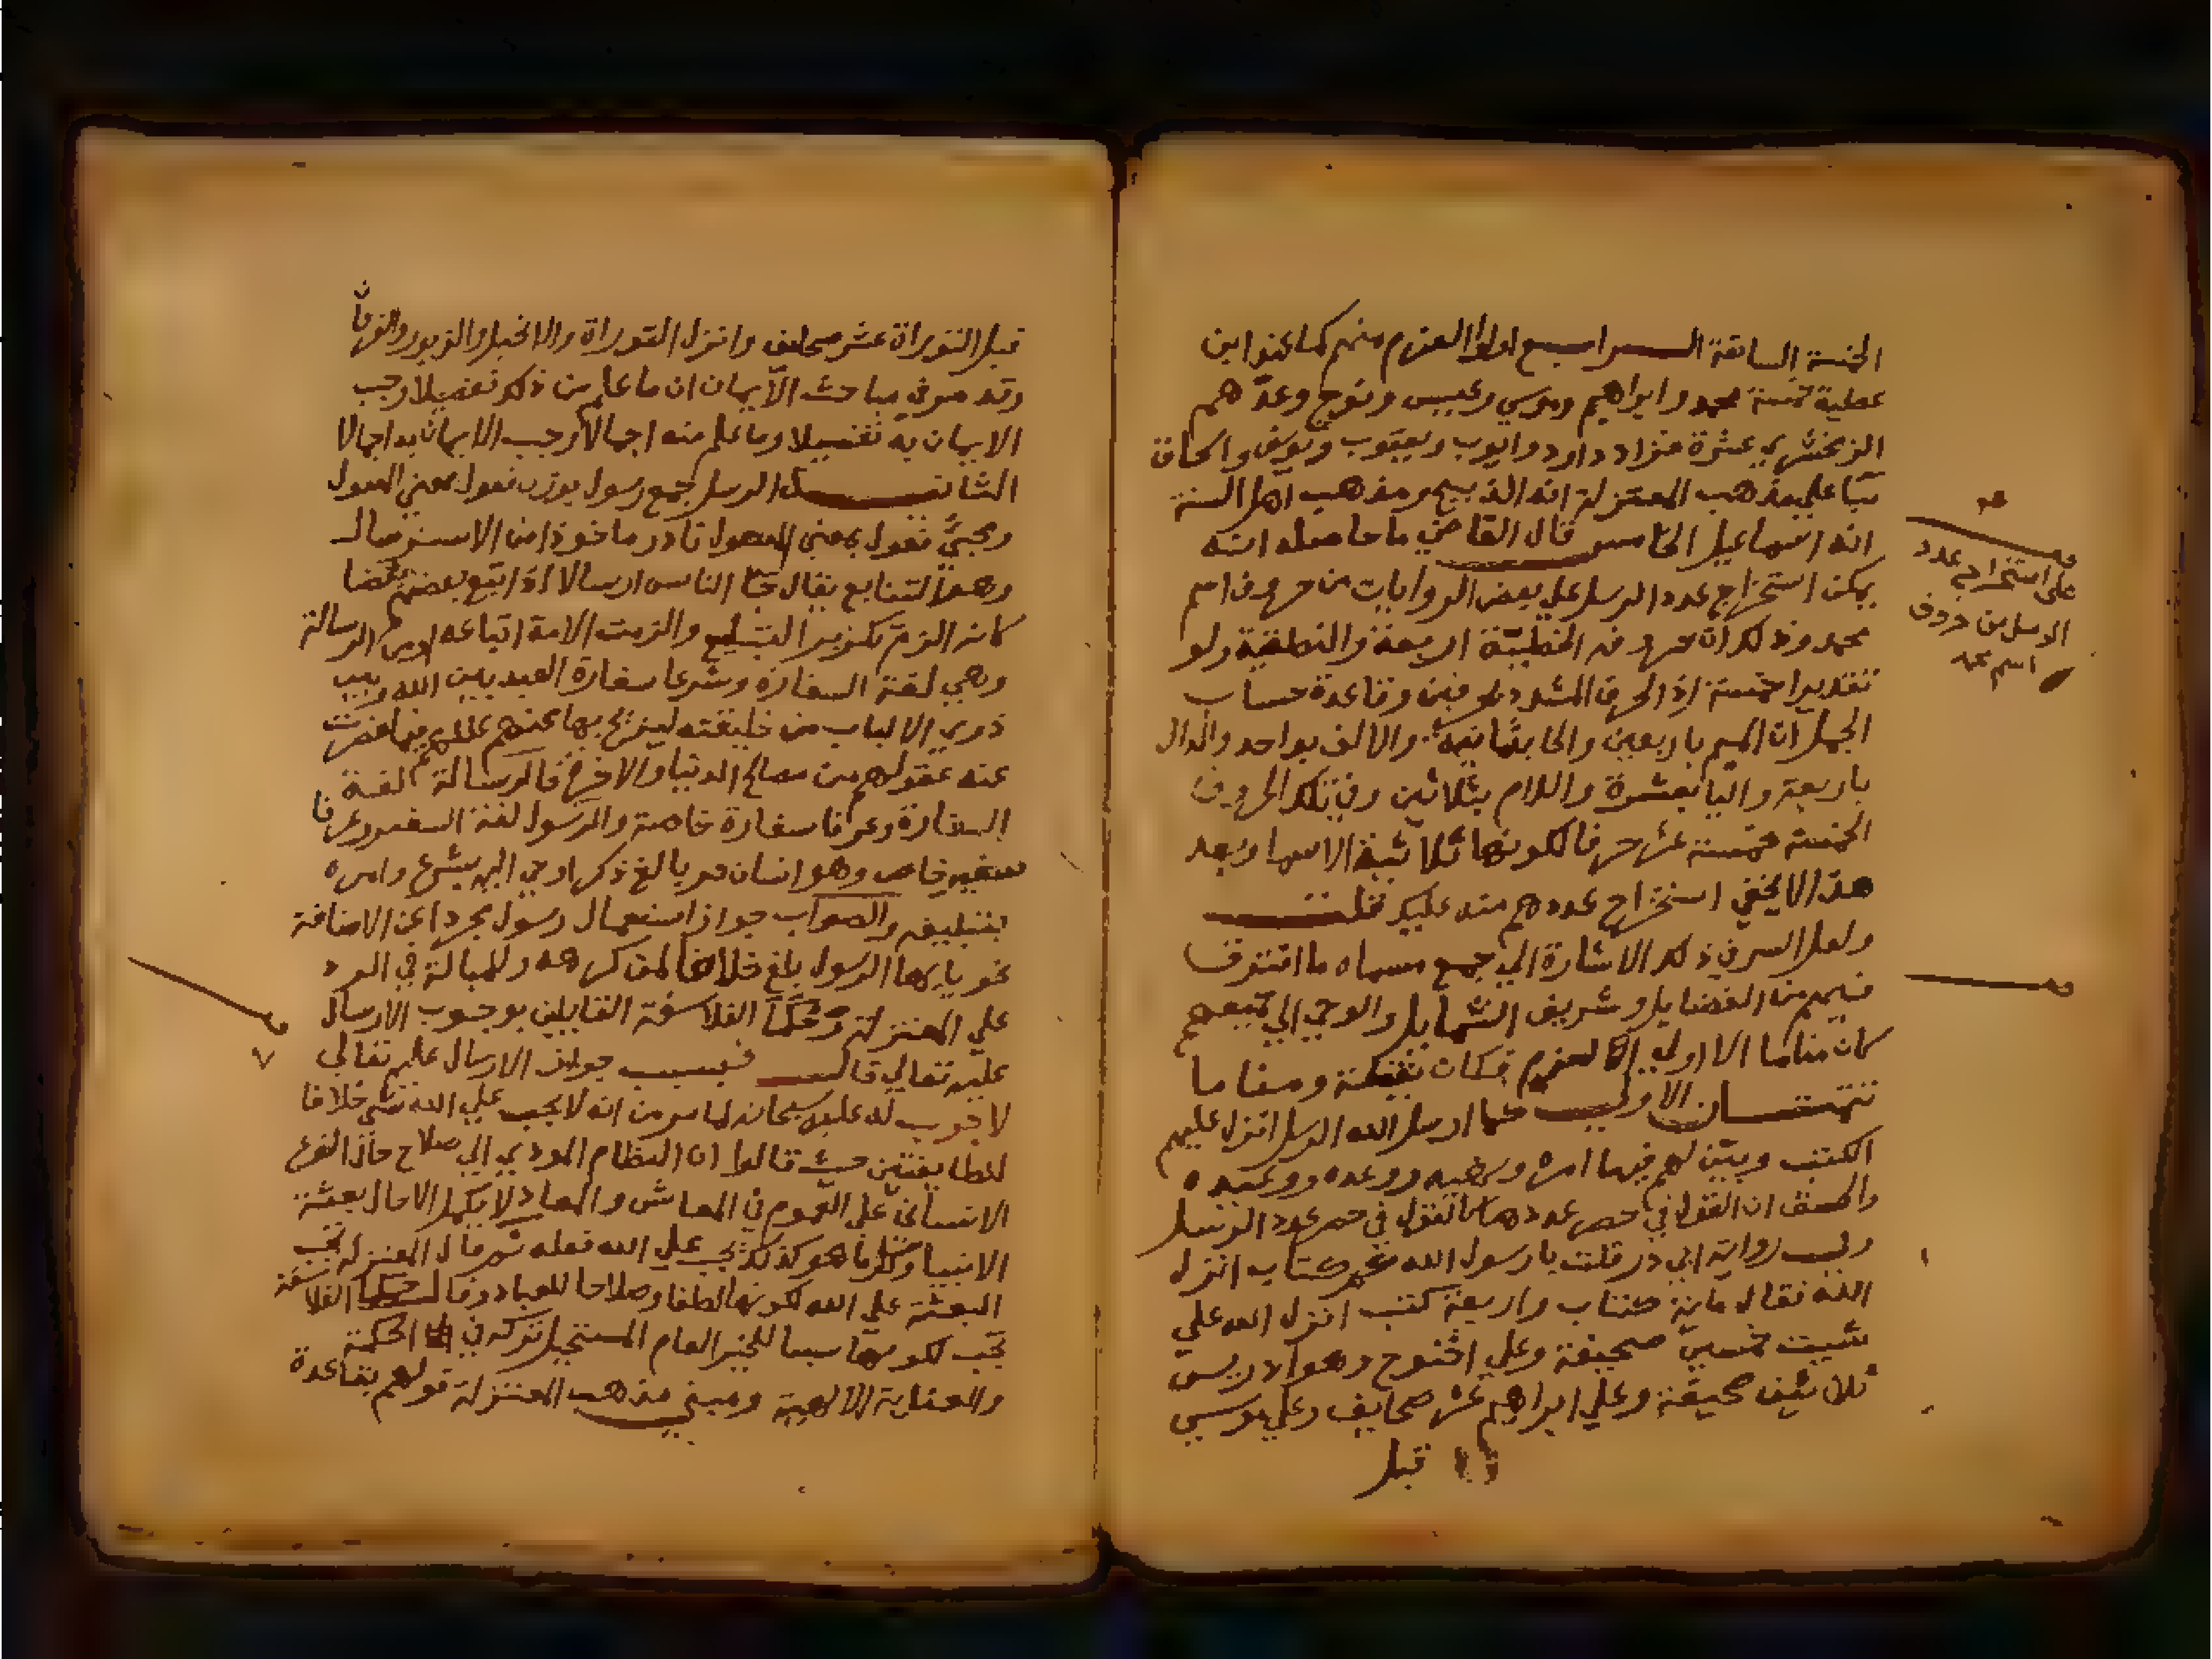 الخمسة السابقة الرابع اولوا العزم منهم كما عند ابن
عطية خمسة محمد وابراهيم وموسي وعيسي ونوح وعدهم
الزمخشري عشرة فزاد داود وايوب ويعقوب ويوسف واسحاق
بنا علي مذهب المعتزلة انه الذبيح ومذهب اهل السنة
انه اسماعيل الخامس قال القاضي ما حاصله انه
يمكن استخراج عدد الرسل علي بعض الروايات من حروف اسم
محمد وذلك ان حروفه الخطية اربعة والنطقية ولو
تقديرا خمسة اذ الحرف المشدد بحرفين وقاعدة حساب
الجمل ان الميم باربعين والحا بثمانية والالف بواحد والدال
باربعة واليا بعشرة واللام بثلاثين وفي تلك الحروف
الخمسة خمسة عشر حرفا لكونها ثلاثية الاسما وبعد
هذا لا يخفي استخراج عددهم منه عليك قلت
ولعل السر في ذلك الاشارة الي جمع مسماه ما افترق
فيهم من الفضايل وشريف الشمايل والوحي الي جميعهم
كان مناما الا اولي العزم فكان يقظة ومناما
تتمتان الاولي كما ارسل الله الرسل انزل عليهم
الكتب وبين لهم فيها امره ونهيه ووعده ووعيده
والحق ان القول في حصر عددها كالقول في حصر عدد الرسل
وفي رواية ابي ذر قلت يا رسول الله كم كتاب انزل
الله فقال مائة كتاب واربعة كتب انزل الله علي
شيث خمسين صحيفة وعلي اخنوخ وهو ادريس
ثلاثين صحيفة وعلي ابراهيم عشر صحايف وعلي موسي
قبل
علي استخراج عدد
الرسل من حروف
اسم محمد
قبل التوراة عشر صحايف وانزل التوراة والانجيل والزبور والفرقان
وقد مر في مباحث الايمان ان ما علم من ذلك تفصيلا وجب
الايمان به تفصيلا وما علم منه اجمالا وجب الايمان به اجمالا
الثانية الرسل جمع رسول بوزن فعول بمعني المفعول
ومجيئ فعول بمعني المفعول نادر ماخوذ من الاسترسال
وهو التتابع يقال جا الناس ارسالا اذا اتبع بعضهم بعضا
كانه الزم تكرير التبليغ والزمت الامة اتباعه الرسالة
وهي لغة السفارة وشرعا سفارة العبد بين الله وبين
ذوي الالباب من خليقته ليزيح بها عنهم عللهم فيما قصرت
عنه عقولهم من مصالح الدنيا والاخرة فالرسالة لغة
السفارة وعرفا سفارة خاصة والرسول لغة السفير وعرفا
سفير خاص وهو انسان حر بالغ ذكر اوحي اليه بشرع وامره
بتبليغه والصواب جواز استعمال رسول مجردا عن الاضافة
نحو يا ايها الرسول بلغ خلافا لمن كرهه وللمبالغة في الرد
علي المعتزلة وحكما الفلاسفة القايلين بوجوب الارسال
عليه تعالي قال جواز الارسال عليه تعالي
لا وجوب له عليه سبحانه لما مر من انه لا يجب علي الله شي خلافا
للطايفتين حيث قالوا ان النظام المودي الي صلاح حال النوع
الانساني علي العموم في المعاش والمعاد لا يكمل الا ببعثة
الانبيا وكل ما هو كذلك يجب علي الله فعله ثم قال المعتزلة تجب
البعثة علي الله لكونها لطفا وصلاحا للعباد وقال حكما الفلاسفة
تجب لكونها سببا للخير العام المستحيل تركه في الحكمة
والعناية الالهية ومبني مذهب المعتزلة قولهم بقاعدة